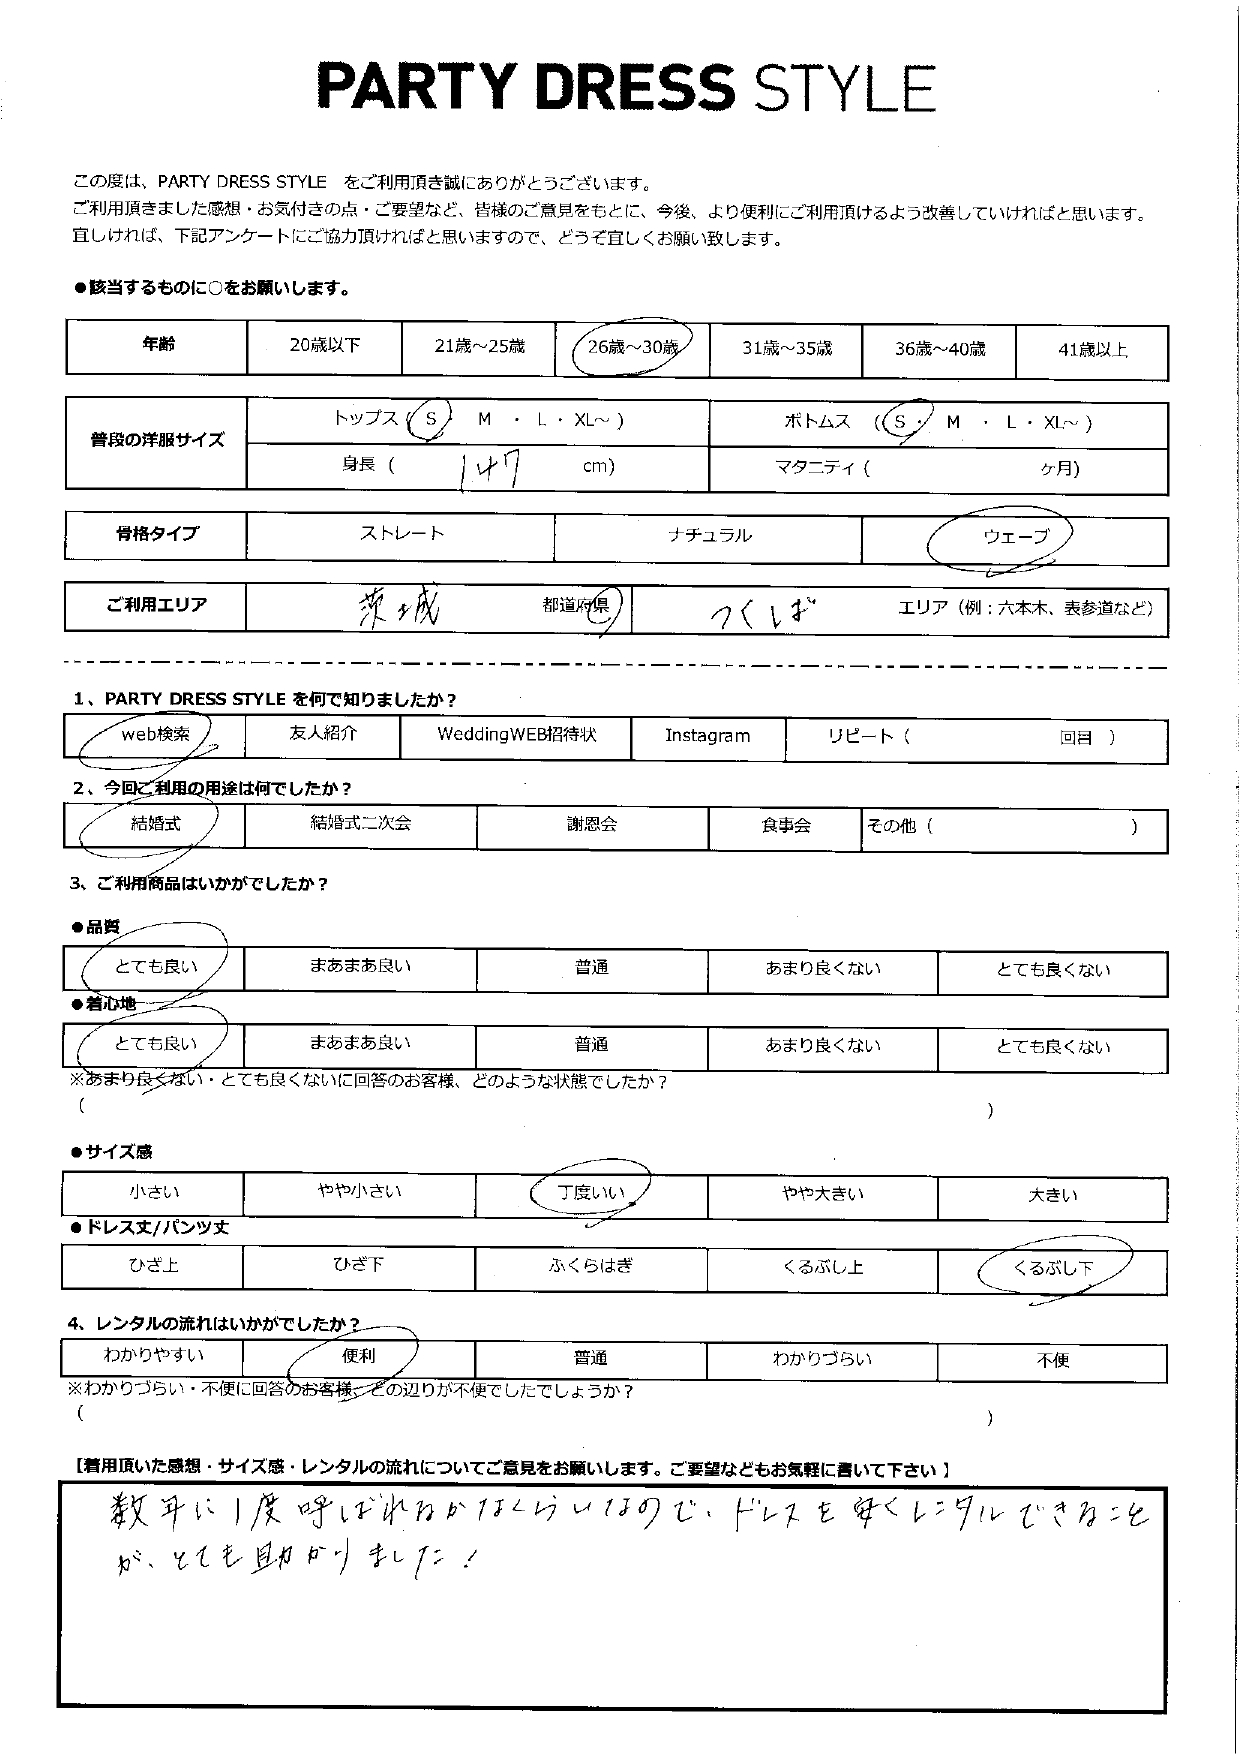 PARTY DRESS STYLE
この度は、PARTY DRESS STYLE をご利用頂き誠にありがとうございます。
ご利用頂きました感想・お気付きの点・ご要望など、皆様のご意見をもとに、今後、より便利にご利用頂けるよう改善していければと思います。
宜しければ、下記アンケートにご協力頂ければと思いますので、どうぞ宜しくお願い致します。
●該当するものに○をお願いします。
年齢 20歳以下 21歳～25歳 26歳～30歳 31歳～35歳 36歳～40歳 41歳以上
普段の洋服サイズ
トップス ( S M ・ L ・ XL～ ) ボトムス ( S ・ M ・ L ・ XL～ )
身長 ( 147 cm) マタニティ ( ヶ月)
骨格タイプ ストレート ナチュラル ウェーブ
ご利用エリア 茨城 都道府県 つくば エリア（例：六本木、表参道など）
1、PARTY DRESS STYLE を何で知りましたか？
web検索 友人紹介 WeddingWEB招待状 Instagram リピート ( 回目 )
2、今回ご利用の用途は何でしたか？
結婚式 結婚式二次会 謝恩会 食事会 その他 ( )
3、ご利用商品はいかがでしたか？
●品質
とても良い まあまあ良い 普通 あまり良くない とても良くない
●着心地
とても良い まあまあ良い 普通 あまり良くない とても良くない
※あまり良くない・とても良くないに回答のお客様、どのような状態でしたか？
( )
●サイズ感
小さい やや小さい 丁度いい やや大きい 大きい
●ドレス丈/パンツ丈
ひざ上 ひざ下 ふくらはぎ くるぶし上 くるぶし下
4、レンタルの流れはいかがでしたか？
わかりやすい 便利 普通 わかりづらい 不便
※わかりづらい・不便に回答のお客様、どの辺りが不便でしたでしょうか？
( )
【着用頂いた感想・サイズ感・レンタルの流れについてご意見をお願いします。ご要望などもお気軽に書いて下さい】
数年に1度呼ばれるかないくらいなので、ドレスを安くレンタルできること
が、とても助かりました！